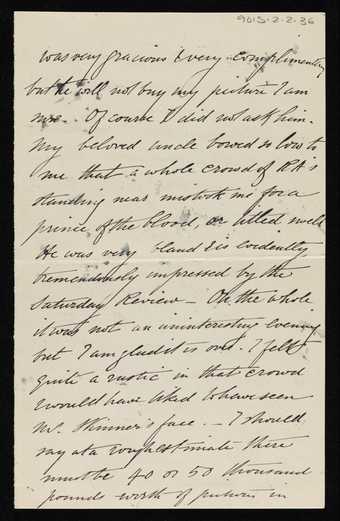 9015-2-2-36
was very gracious & very complimentary
but he will not buy my picture I am
Of course I did not ask him.
My beloved uncle bowed so low to
me that a whole crowd of RA's
standing near mistook me for a
prince of the blood, or titled swell
He was very bland & is evidently
tremendously impressed by the
Saturday Review – On the whole
it was not an uninteresting evening
but I am glad it is over. I felt
quite a rustic in that crowd
& would have liked to have seen
Mr. Skinner's face. – I should
say at a rough estimate there
must be 40 or 50 thousand
pounds worth of pictures in